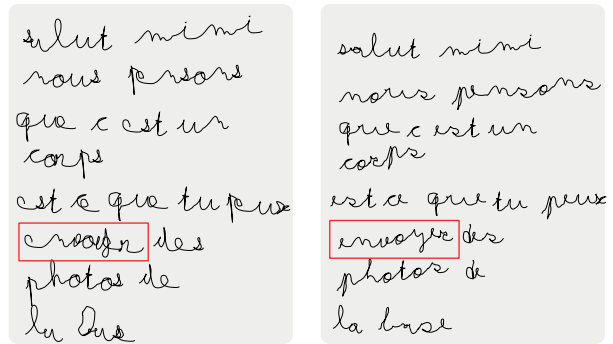 salut mimi
nous pensons
que c est un
corps
est ce que tu peux
envoyer des
photos de
la
salut mimi
nous pensons
que c est un
corps
est ce que tu peux
envoyer des
photos de
la base